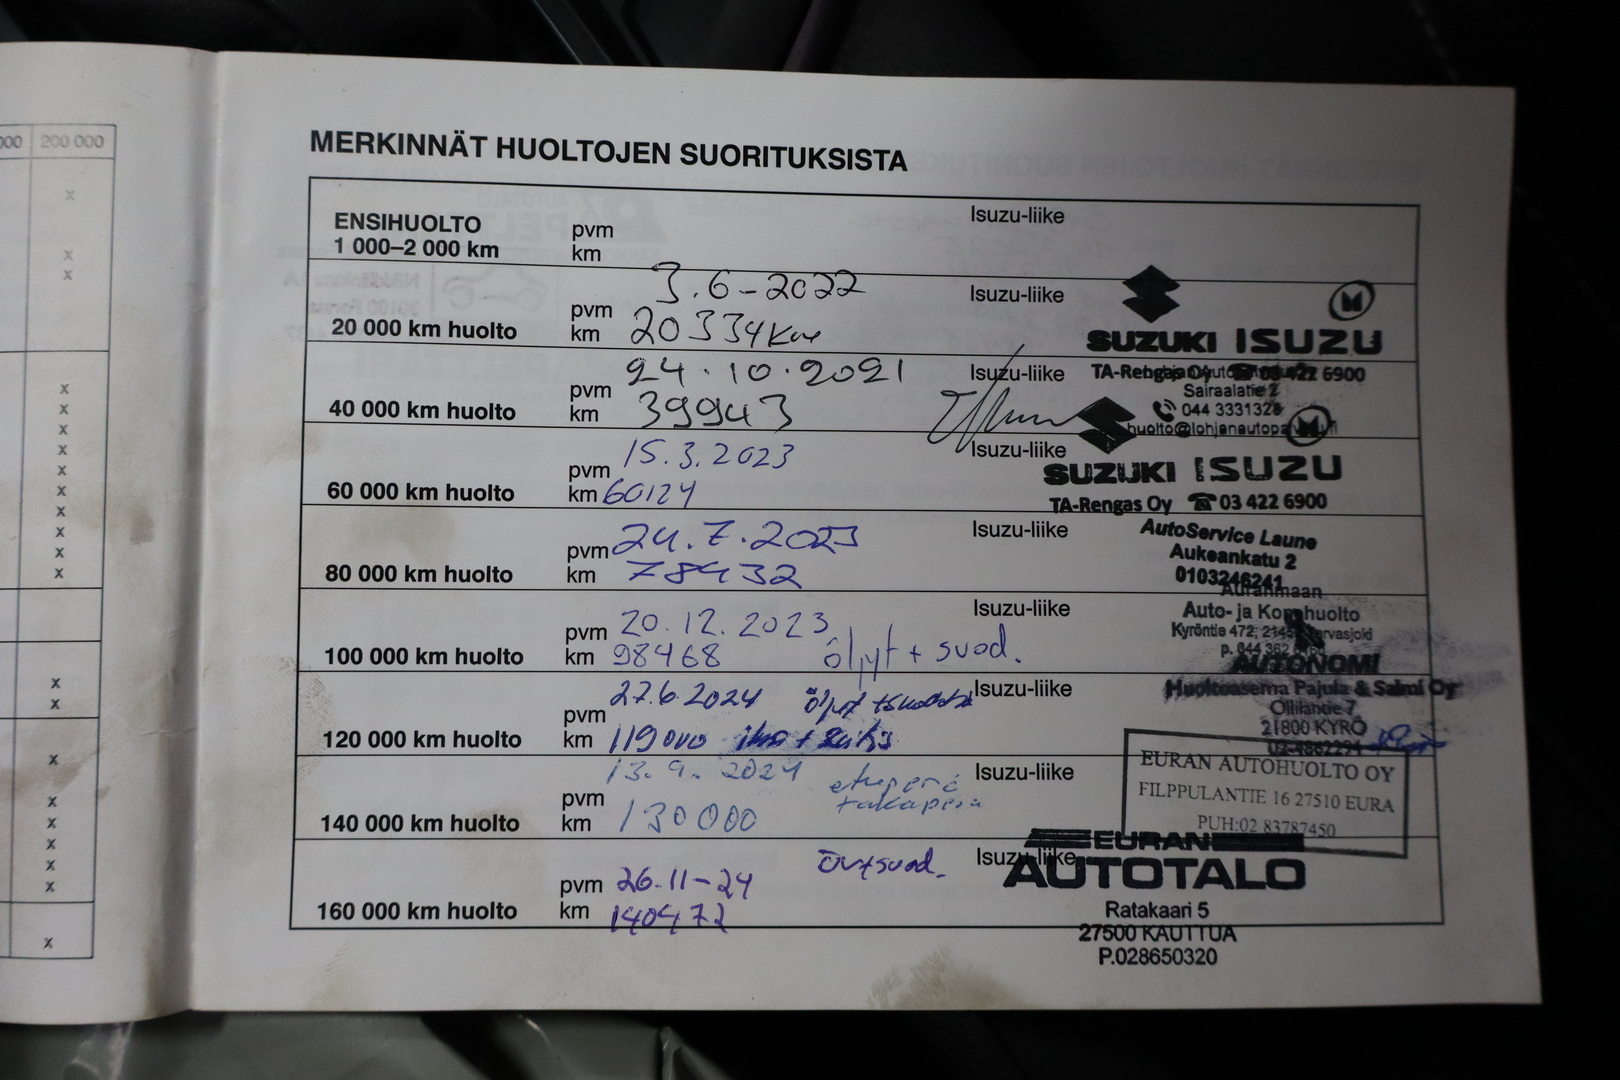 000 200 000
MERKINNÄT HUOLTOJEN SUORITUKSISTA
ENSIHUOLTO
1 000–2 000 km
pvm
km
Isuzu-liike
20 000 km huolto
pvm 3.6-2022
km 20334km
Isuzu-liike
SUZUKI ISUZU
TA-Rengas Oy ☎ 03 422 6900
40 000 km huolto
pvm 24.10.2021
km 39943
Isuzu-liike
Sairaalatie 2
044 3331328
huolto@lohjanautopalvelu.fi
60 000 km huolto
pvm 15.3.2023
km 60124
Isuzu-liike
SUZUKI ISUZU
TA-Rengas Oy ☎ 03 422 6900
80 000 km huolto
pvm 24.7.2023
km 78432
Isuzu-liike
AutoService Laune
Aukeankatu 2
0103246241
100 000 km huolto
pvm 20.12.2023
km 98468 öljyt + suod.
Isuzu-liike
Auranmaan
Auto- ja Konehuolto
Kyröntie 472, Tarvasjoki
120 000 km huolto
pvm 27.6.2024
km 119000
Isuzu-liike
AUTONOMI
Huoltoasema Pajula & Salmi Oy
Ollilantie 7
21800 KYRÖ
02-4862291
140 000 km huolto
pvm 13.9.2024 etuperä
takaperä
km 130000
Isuzu-liike
EURAN AUTOHUOLTO OY
FILPPULANTIE 16 27510 EURA
PUH:02 83787450
160 000 km huolto
pvm 26.11-24
km 140472
Isuzu-liike
EURAN
AUTOTALO
Ratakaari 5
27500 KAUTTUA
P.028650320